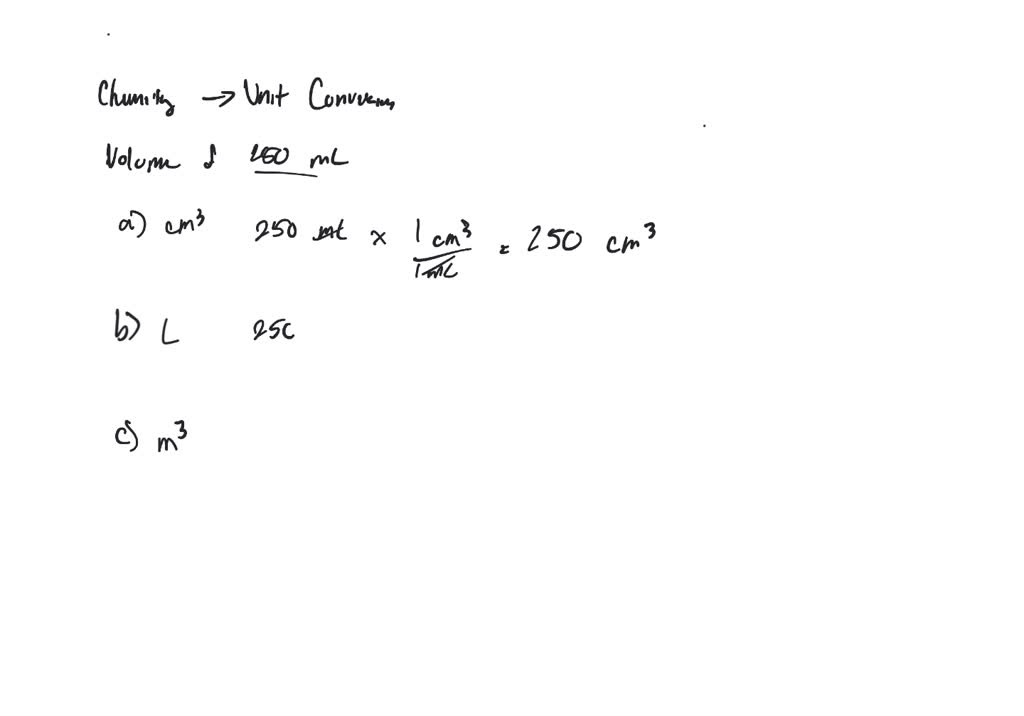 Chemistry → Unit Conversions
Volume of 250 mL
a) cm³ 250 mL × 1 cm³ / 1 mL = 250 cm³
b) L 250
c) m³